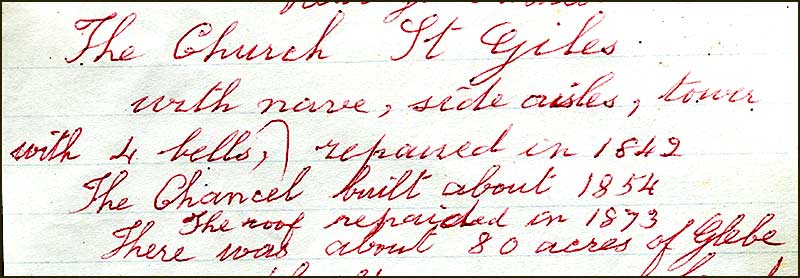 The Church St Giles
with nave, side aisles, tower
with 4 bells,) repaired in 1842
The Chancel built about 1854
The roof repaided in 1873
There was about 80 acres of Glebe